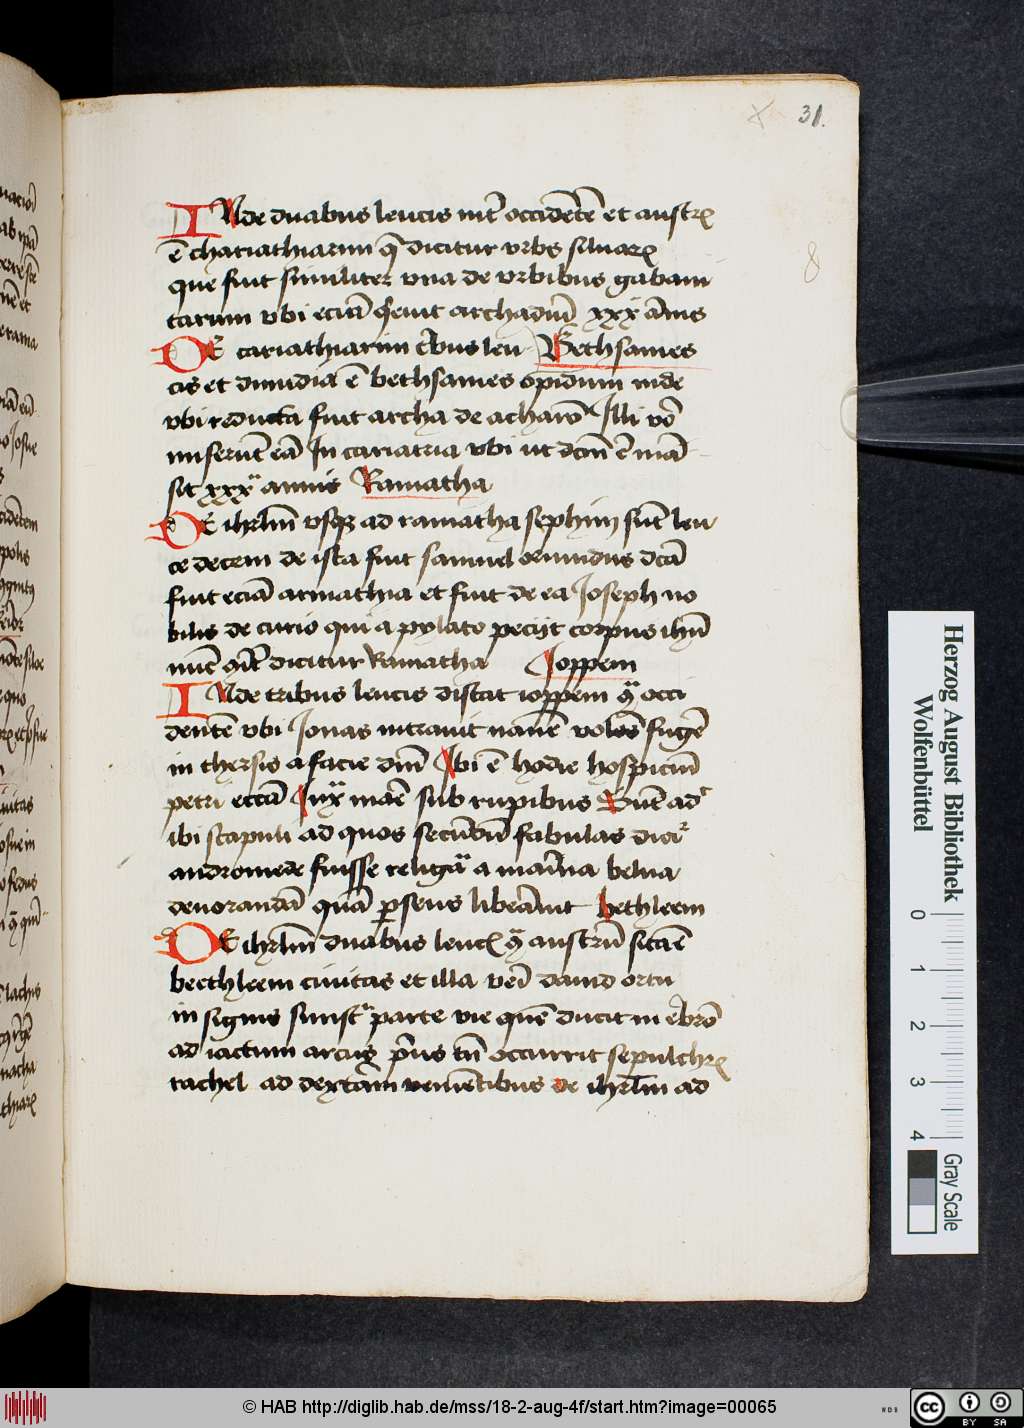 31.
8
INde duabus leucis int̄ occidētē et austrꝝ
ē chariathiarim q̄ dicitur vrbs siluarꝝ
que fuit similiter vna de vrbibus gabani
tarum vbi eciā archa dnī xxx annis
DE cariathiarim tribus leu
Bethsames
cis et dimidia ē bethsames opidum inde
vbi reducta fuit archa de acharō Illi v̄o
miserūt eā In cariatria vbi ut dcm̄ ē mā
sit xxx annis Ramatha
DE ihrlm̄ vsqꝫ ad ramatha sophim sūt leu
ce decem de ista fuit samuel oriundus dcā
fuit eciā armathia et fuit de ea Joseph no
bilis de curio qui a pylato peciit corpus ihū
nūc dicitur Ramatha Joppem
INde tribus leucis distat ioppem occi
dentē vbi Jonas intrauit nauē volēs fugē
in thersis a facie dnī Ibi ē hodie hospiciū
petri eccā Iux mare sub rupibus Sūt ad
ibi scapuli ad quos secūdū fabulas dicit
andromede fuisse religā a marina belua
deuorandā quā perseus libeāuit bethleem
DE ihrlm̄ duabus leuc austrū sita ē
beethleem ciuitas et illa dauid ortu
in signis sinistra parte vie quē ducit in ebrō
ad iactum arcus prius tn̄ occurrit sepulchrꝝ
rachel ad dextam venietibus de ihrlm̄ ad
Herzog August Bibliothek
Wolfenbüttel
0 1 2 3 4
Gray Scale
© HAB http://diglib.hab.de/mss/18-2-aug-4f/start.htm?image=00065
WDB
cc
BY SA